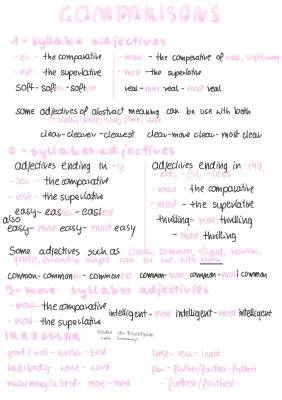 COMPARISONS
1 - syllabe adjectives
- er - the comparative
- est - the superlative
soft - softer - softest
- more - the comperative of real, right, wrong
- most - the superlative
real - more real - most real
some adjectives of abstract meaning can be use with both
clear, safe, true, free, wise
clear - clearer - clearest clear - more clear - most clear
2 - syllabes adjectives
adjectives ending in -y
- ier - the comparative
- iest - the superlative
easy - easier - easiest
also
easy - more easy - most easy
adjectives ending in -ing,
-ed, -ful, -less
- more - the comparative
- most - the superlative
thrilling - more thrilling
- most thrilling
Some adjectives such as clever, common, stupid, narrow,
gentle, friendly, simple can be use with both
common - commoner - commonest common - more common - most common
3 - more syllabes adjectives
- more - the comparative
- most - the superlative
intelligent - more intelligent - most intelligent
IRREGULAR
good / well - better - best
bad / badly - worse - worst
much / many / a lot of - more - most
little - less - least
far - farther / further - furthest
- furthest / farthest